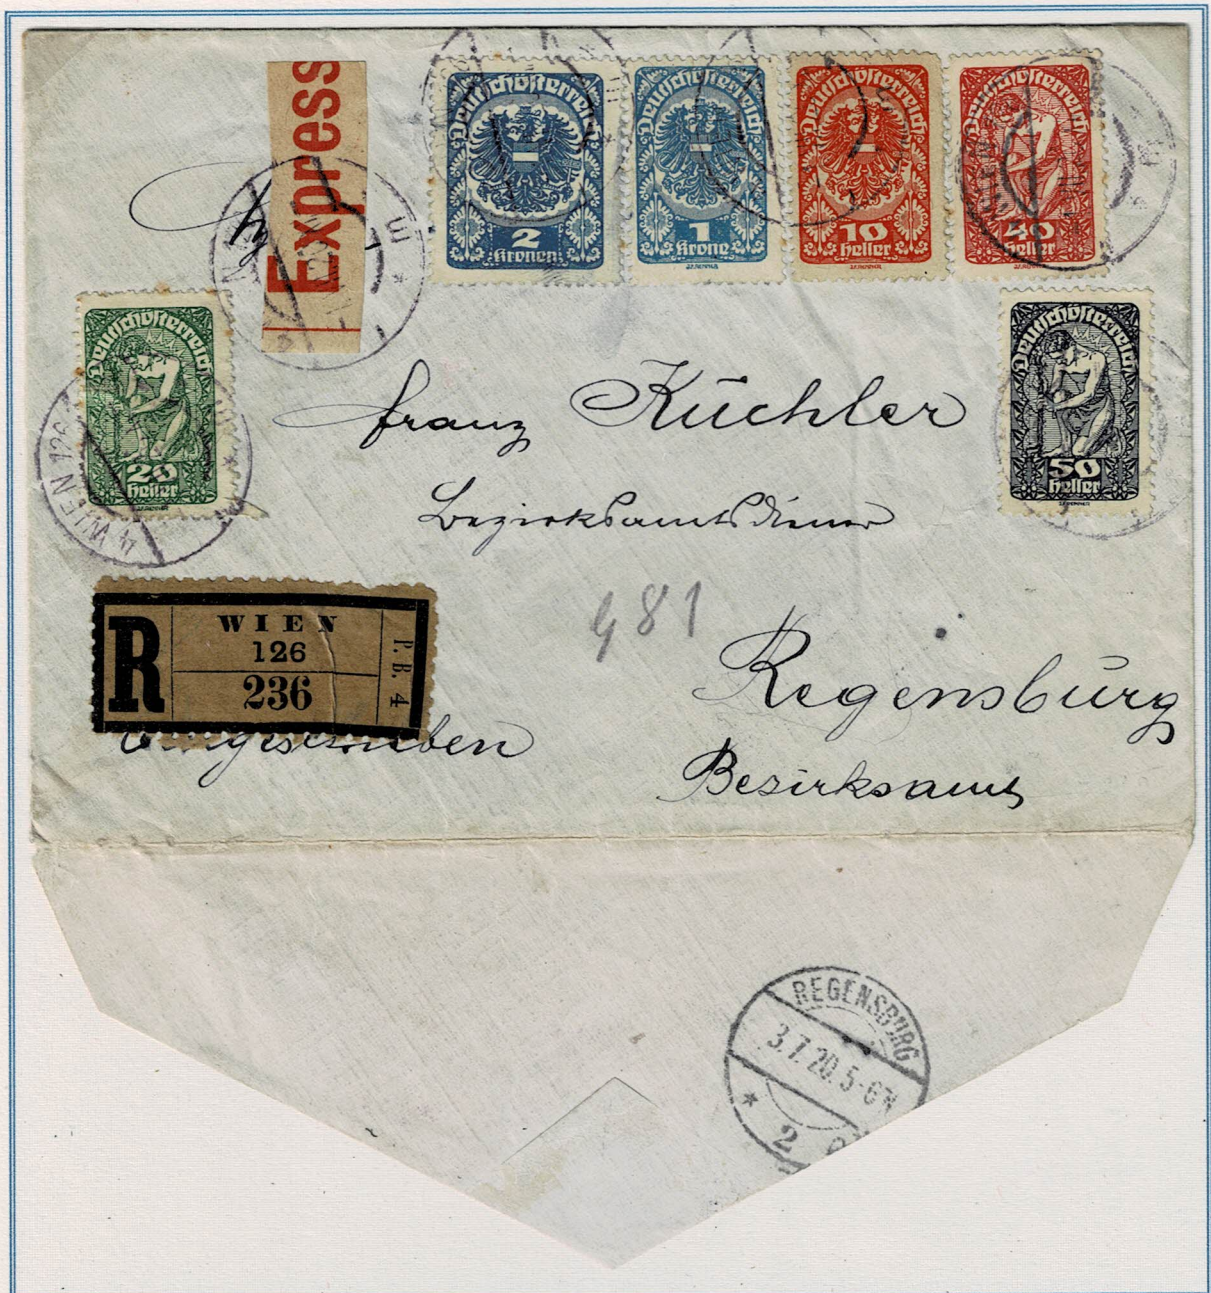 Express
Deutschösterreich
2
Kronen
Deutschösterreich
1
Krone
Deutschösterreich
10
Heller
Deutschösterreich
40
Heller
Deutschösterreich
20
Heller
Deutschösterreich
50
Heller
4 WIEN 126
Franz Küchler
Bezirksamtsdiener
481
R
WIEN
126
236
P. B. 4
Regensburg
Eingeschrieben
Bezirksamt
REGENSBURG
3.7.20.5-6N
* 2